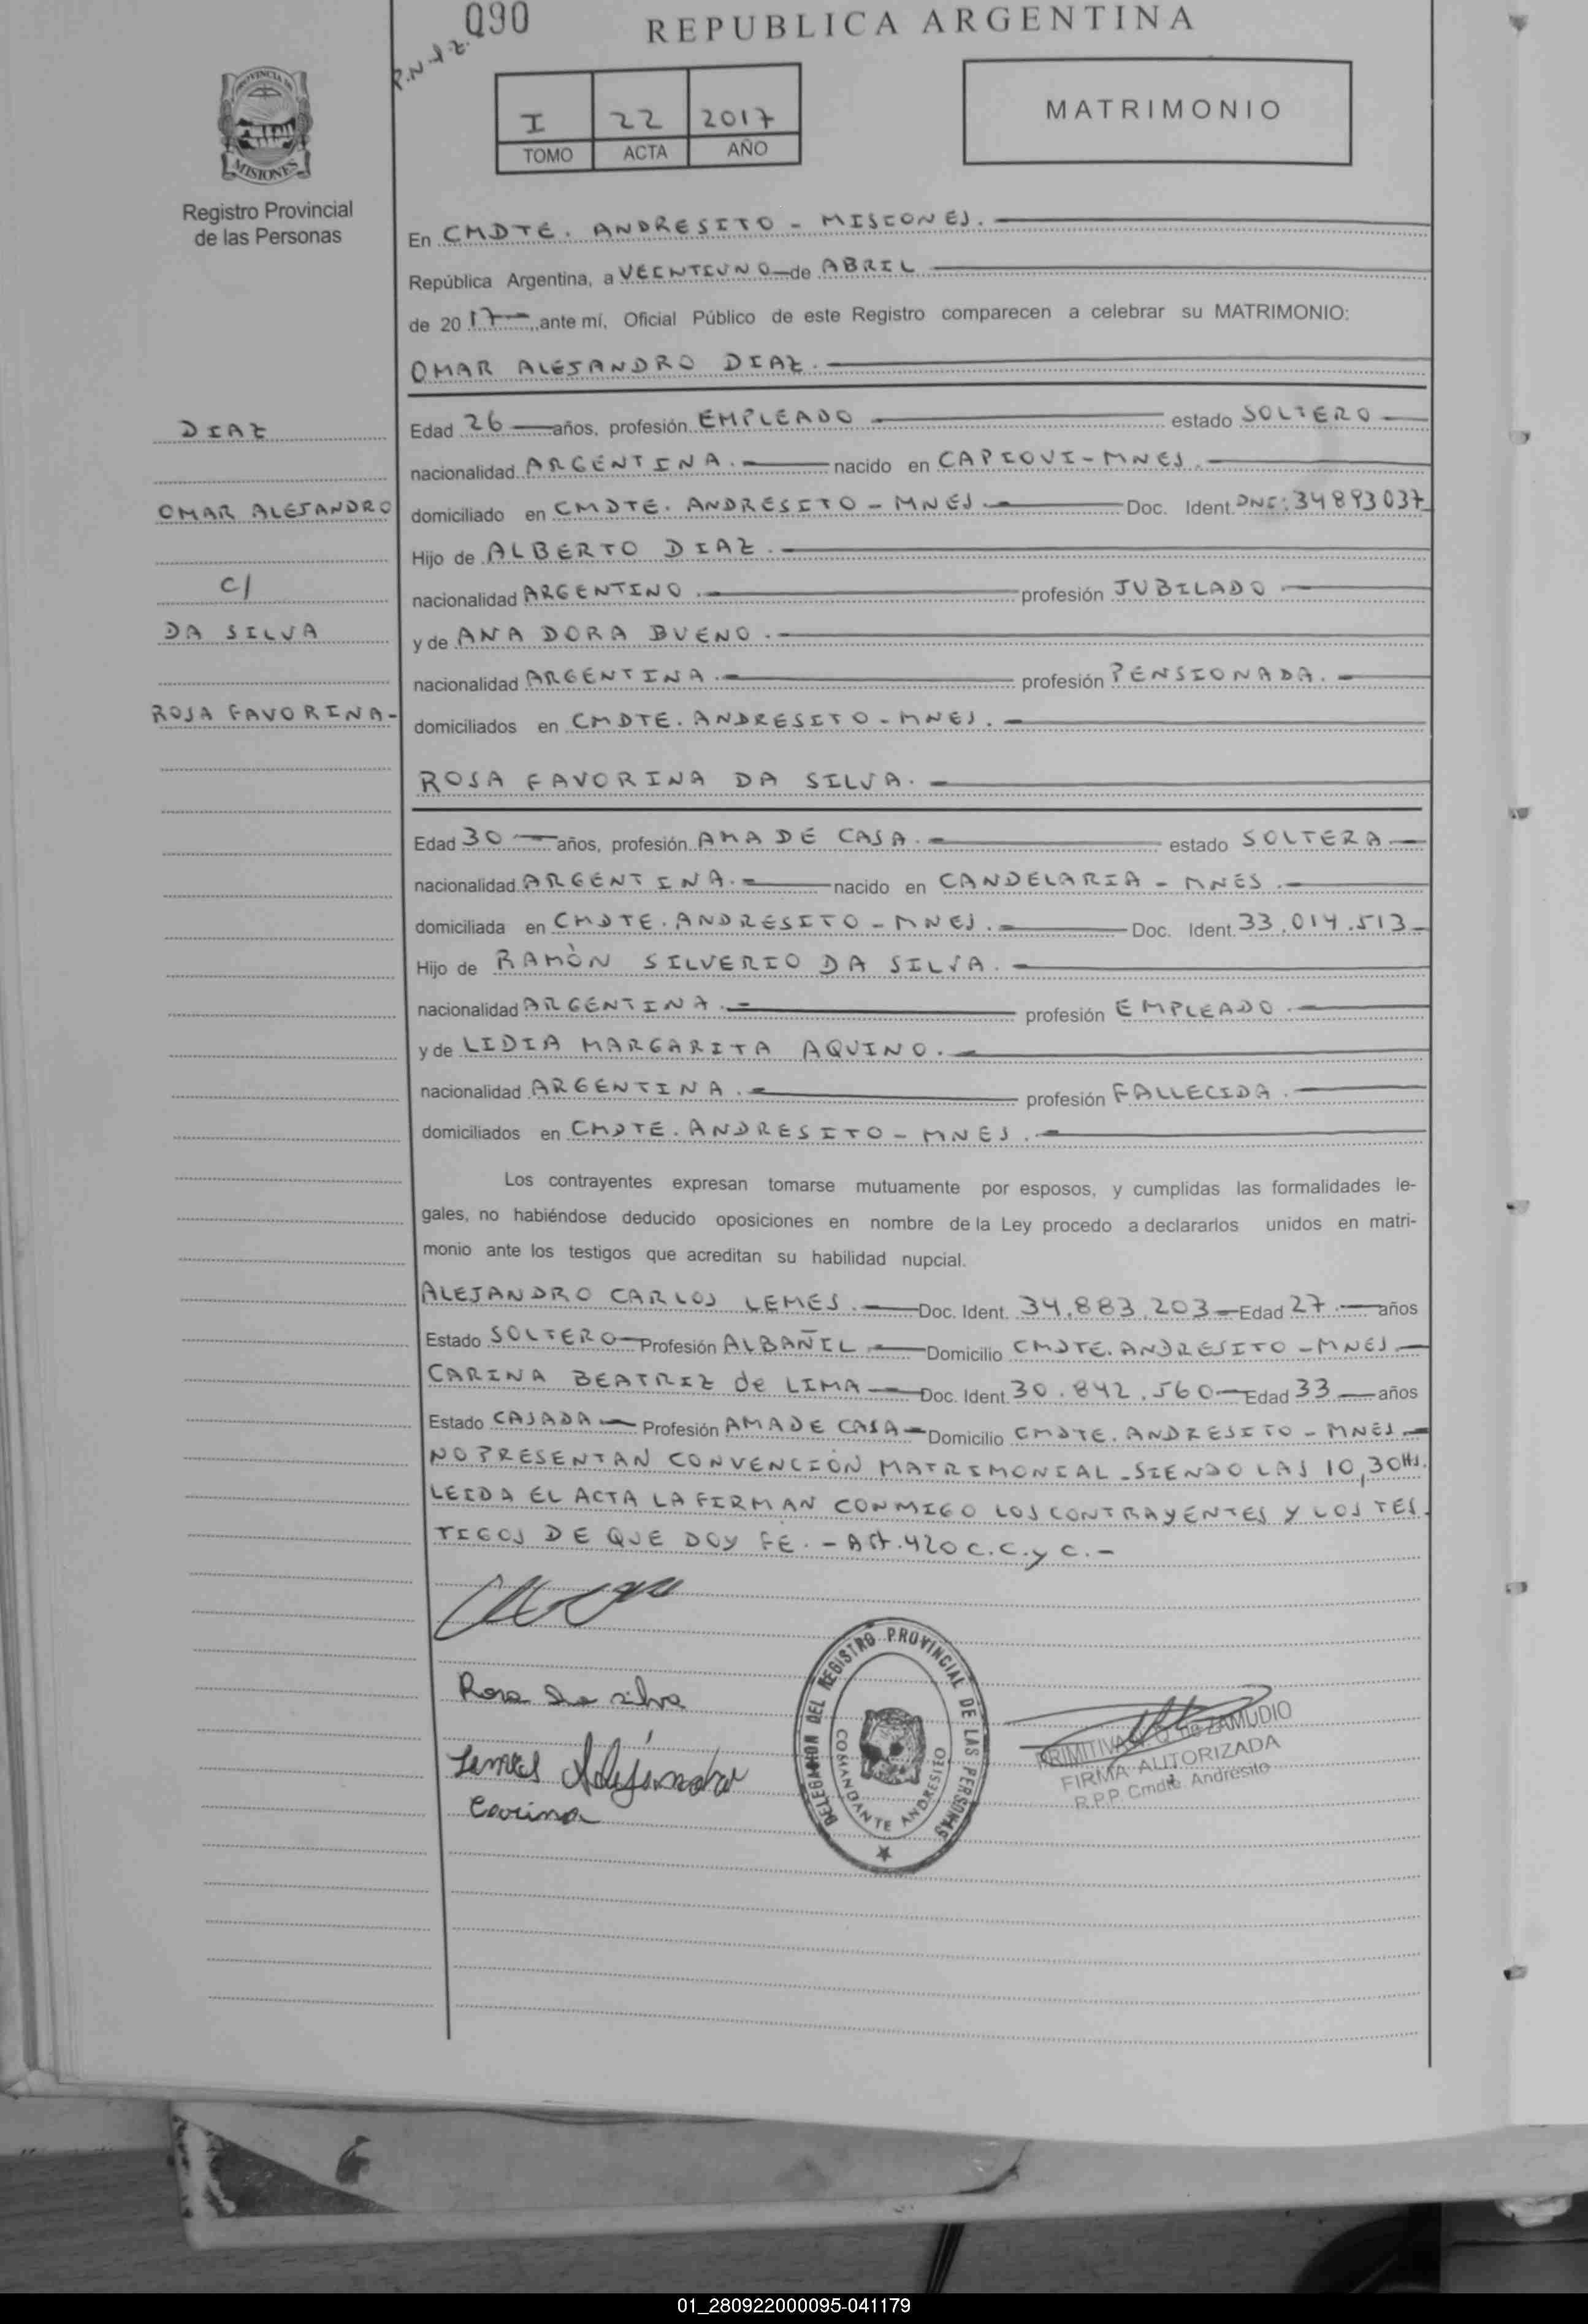 090
P.N-12.
REPUBLICA ARGENTINA
I 22 2017
TOMO ACTA AÑO
MATRIMONIO
PROVINCIA DE
MISIONES
Registro Provincial
de las Personas
En CMDTE. ANDRESITO - MISIONES.
República Argentina, a VEINTIUNO de ABRIL
de 2017, ante mí, Oficial Público de este Registro comparecen a celebrar su MATRIMONIO:
OMAR ALEJANDRO DIAZ.
DIAZ
OMAR ALEJANDRO
C/
DA SILVA
ROSA FAVORINA-
Edad 26 años, profesión EMPLEADO estado SOLTERO
nacionalidad ARGENTINA. nacido en CAPIOVI-MNES.
domiciliado en CMDTE. ANDRESITO - MNES. Doc. Ident. DNI: 34893037
Hijo de ALBERTO DIAZ.
nacionalidad ARGENTINO. profesión JUBILADO
y de ANA DORA BUENO.
nacionalidad ARGENTINA. profesión PENSIONADA.
domiciliados en CMDTE. ANDRESITO - MNES.
ROSA FAVORINA DA SILVA.
Edad 30 años, profesión AMA DE CASA. estado SOLTERA
nacionalidad ARGENTINA. nacido en CANDELARIA - MNES.
domiciliada en CMDTE. ANDRESITO - MNES. Doc. Ident. 33.014.513
Hijo de RAMÒN SILVERIO DA SILVA.
nacionalidad ARGENTINA. profesión EMPLEADO.
y de LIDIA MARGARITA AQUINO.
nacionalidad ARGENTINA. profesión FALLECIDA.
domiciliados en CMDTE. ANDRESITO - MNES.
Los contrayentes expresan tomarse mutuamente por esposos, y cumplidas las formalidades le-
gales, no habiéndose deducido oposiciones en nombre de la Ley procedo a declararlos unidos en matri-
monio ante los testigos que acreditan su habilidad nupcial.
ALEJANDRO CARLOS LEMES. Doc. Ident. 34.883.203 Edad 27. años
Estado SOLTERO Profesión ALBAÑIL Domicilio CMDTE. ANDRESITO - MNES
CARINA BEATRIZ de LIMA Doc. Ident. 30.842.560 Edad 33 años
Estado CASADA Profesión AMA DE CASA Domicilio CMDTE. ANDRESITO - MNES
NO PRESENTAN CONVENCIÓN MATRIMONIAL - SIENDO LAS 10,30 Hs.
LEIDA EL ACTA LA FIRMAN CONMIGO LOS CONTRAYENTES Y LOS TES-
TIGOS DE QUE DOY FÉ. - Art. 420 C.C.y C. -
Rosa Da silva
Lemes Alejandro
Carina
DELEGACION DEL REGISTRO PROVINCIAL DE LAS PERSONAS
COMANDANTE ANDRESITO
de ZAMUDIO
FIRMA AUTORIZADA
R.P.P. Cmdte. Andresito
01_280922000095-041179